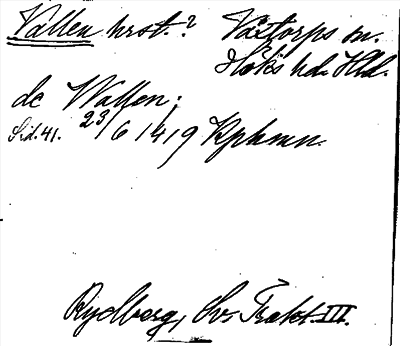 Vallen hrst.? Växtorps sn.
Höks hd. Hld.
de Wallen;
Sid. 41. 23/6 1419 Kphmn.
Rydberg, Sv. Trakt. III.